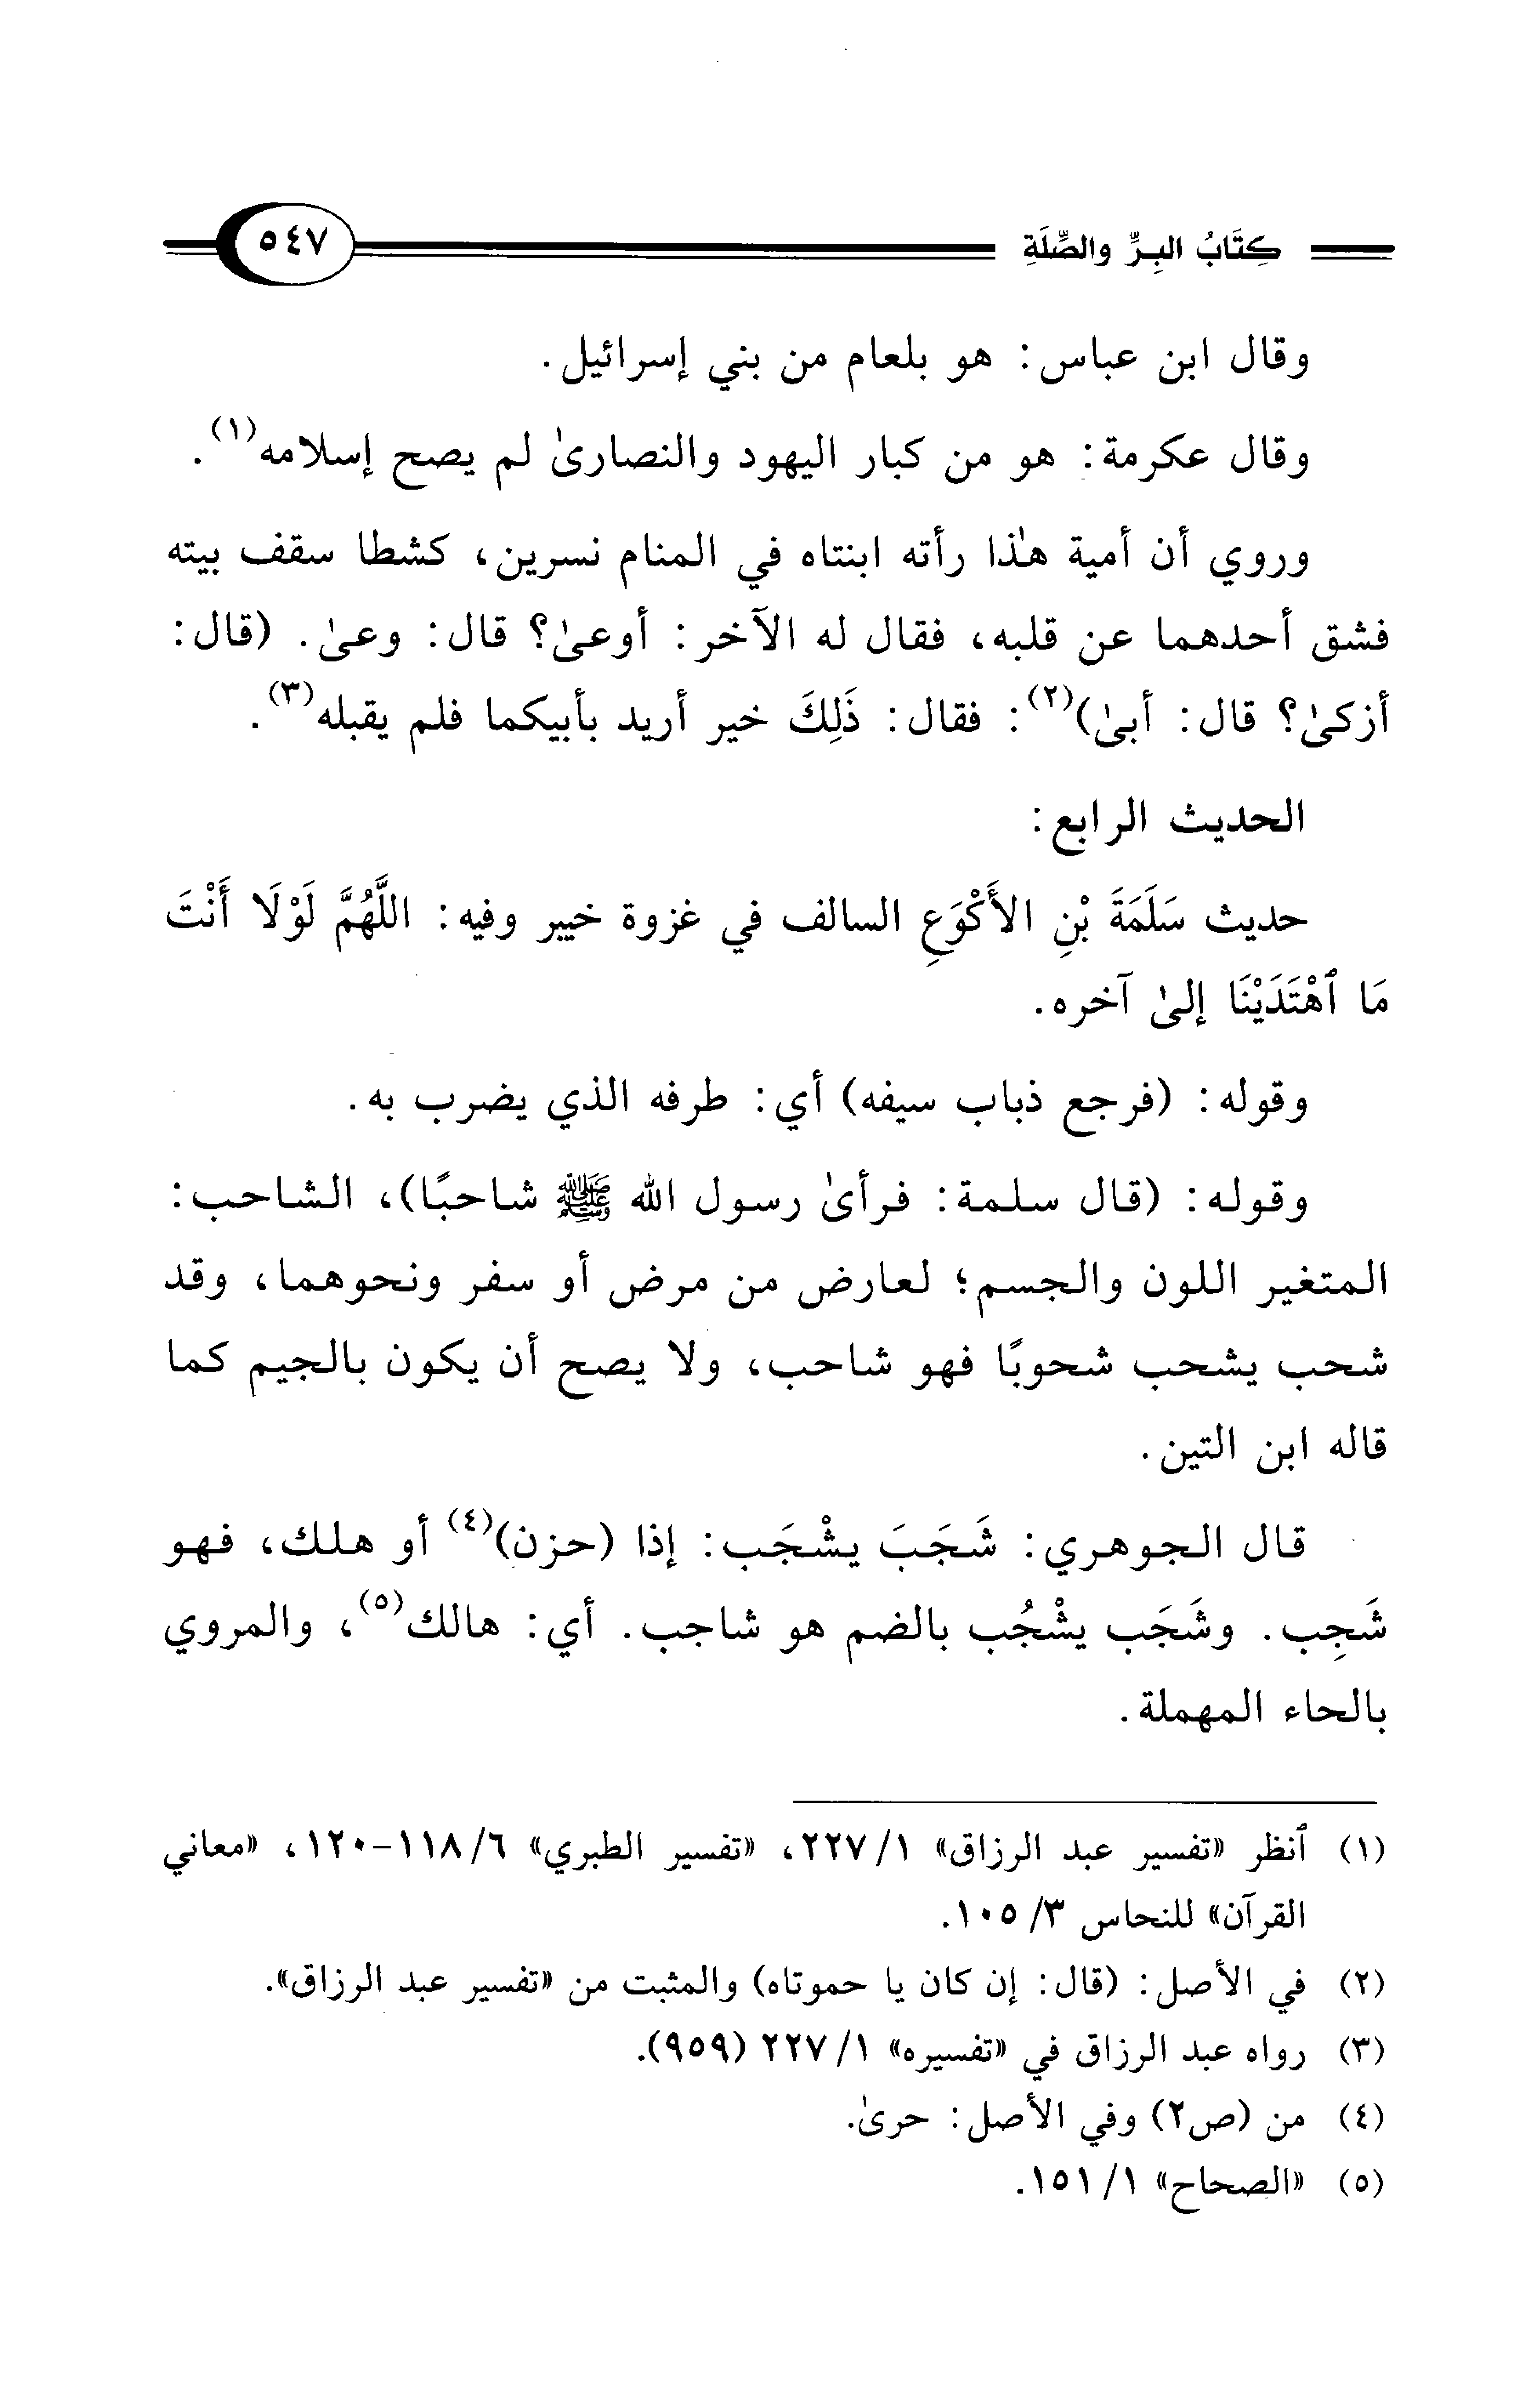 كِتَابُ البِرِّ والصِّلَةِ ٥٤٧
وقال ابن عباس: هو بلعام من بني إسرائيل.
وقال عكرمة: هو من كبار اليهود والنصارىٰ لم يصح إسلامه(١).
وروي أن أمية هٰذا رأته ابنتاه في المنام نسرين، كشطا سقف بيته
فشق أحدهما عن قلبه، فقال له الآخر: أوعىٰ؟ قال: وعىٰ. (قال:
أزكىٰ؟ قال: أبىٰ)(٢): فقال: ذَلِكَ خير أريد بأبيكما فلم يقبله(٣).
الحديث الرابع:
حديث سَلَمَةَ بْنِ الأَكْوَعِ السالف في غزوة خيبر وفيه: اللَّهُمَّ لَوْلَا أَنْتَ
مَا ٱهْتَدَيْنَا إلىٰ آخره.
وقوله: (فرجع ذباب سيفه) أي: طرفه الذي يضرب به.
وقوله: (قال سلمة: فرأىٰ رسول الله ﷺ شاحبًا)، الشاحب:
المتغير اللون والجسم؛ لعارض من مرض أو سفر ونحوهما، وقد
شحب يشحب شحوبًا فهو شاحب، ولا يصح أن يكون بالجيم كما
قاله ابن التين.
قال الجوهري: شَجَبَ يشْجَب: إذا (حزن)(٤) أو هلك، فهو
شَجِب. وشَجَب يشْجُب بالضم هو شاجب. أي: هالك(٥)، والمروي
بالحاء المهملة.
(١) ٱنظر «تفسير عبد الرزاق» ١/ ٢٢٧، «تفسير الطبري» ٦/ ١١٨-١٢٠، «معاني
القرآن» للنحاس ٣/ ١٠٥.
(٢) في الأصل: (قال: إن كان يا حموتاه) والمثبت من «تفسير عبد الرزاق».
(٣) رواه عبد الرزاق في «تفسيره» ١/ ٢٢٧ (٩٥٩).
(٤) من (ص٢) وفي الأصل: حرىٰ.
(٥) «الصحاح» ١/ ١٥١.